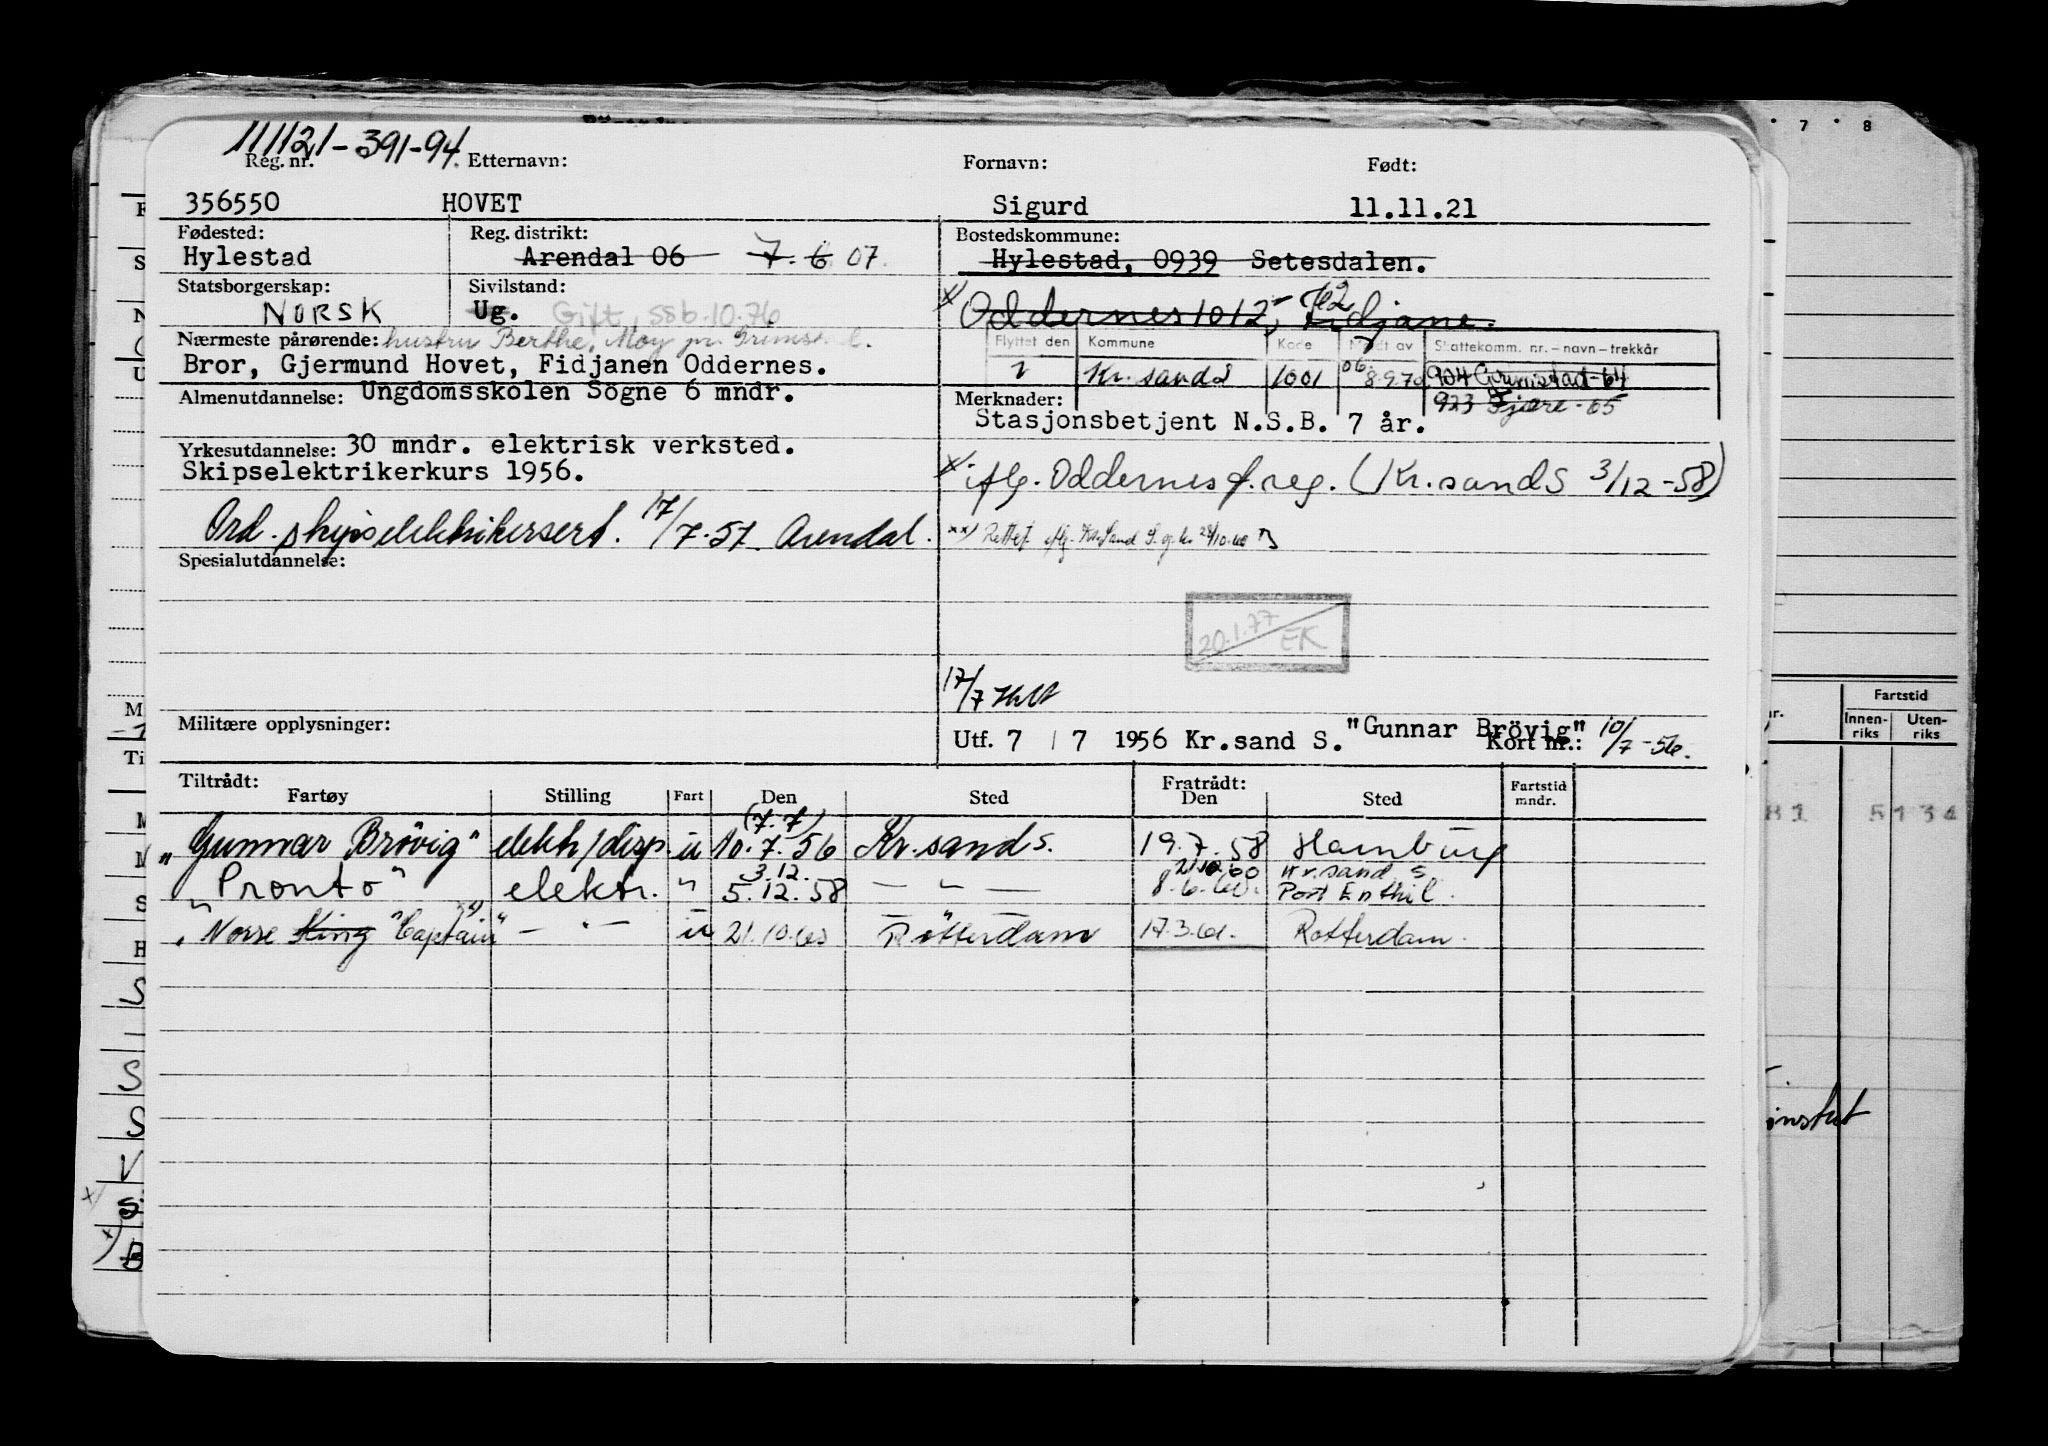 111121-391-94.
Reg. nr. Etternavn: Fornavn: Født:
356550 HOVET Sigurd 11.11.21
Fødested: Reg. distrikt: Bostedskommune:
Hylestad Arendal 06 7. 6 07. Hylestad, 0939 Setesdalen.
Statsborgerskap: Sivilstand:
NORSK Ug. Gift, ssb. 10.76 x) Oddernes 1012, Fidjane.
Nærmeste pårørende: hustru Berthe, Moy
Bror, Gjermund Hovet, Fidjanen Oddernes.
Flyttet den Kommune Kode Meldt av Skattekomm. nr.–navn–trekkår
Kr.sand S 1001 06. 8.9.70 904 Grimstad-64
923 Fjære-65
Almenutdannelse: Ungdomsskolen Sögne 6 mndr.
Merknader:
Stasjonsbetjent N.S.B. 7 år.
Yrkesutdannelse: 30 mndr. elektrisk verksted.
Skipselektrikerkurs 1956.
x) iflg. Oddernes f.reg. (Kr.sand S 3/12-58)
Ord. skipselektrikersert. 17/7-57. Arendal.
xx) Rettet iflg. Kr.sand S.
Spesialutdannelse:
20.1.77 EK
17/7
Militære opplysninger:
Utf. 7 / 7 1956 Kr.sand S. "Gunnar Brövig" Kort nr.: 10/7-56.
Tiltrådt: Fratrådt:
Fartøy Stilling Fart Den Sted Den Sted Fartstid mndr.
"Gunnar Brövig" elektr/disp. u (7.7) 10.7.56 Kr.sand S. 19.7.58 Hamburg
"Pronto" elektr. " 3.12. 5.12.58 — " — 8.6.60. Kr.sand S Port
"Norse King "Captain" — " — u 21.10.60 Rotterdam 17.3.61. Rotterdam.
7 8
Fartstid
Innenriks Utenriks
81 5134